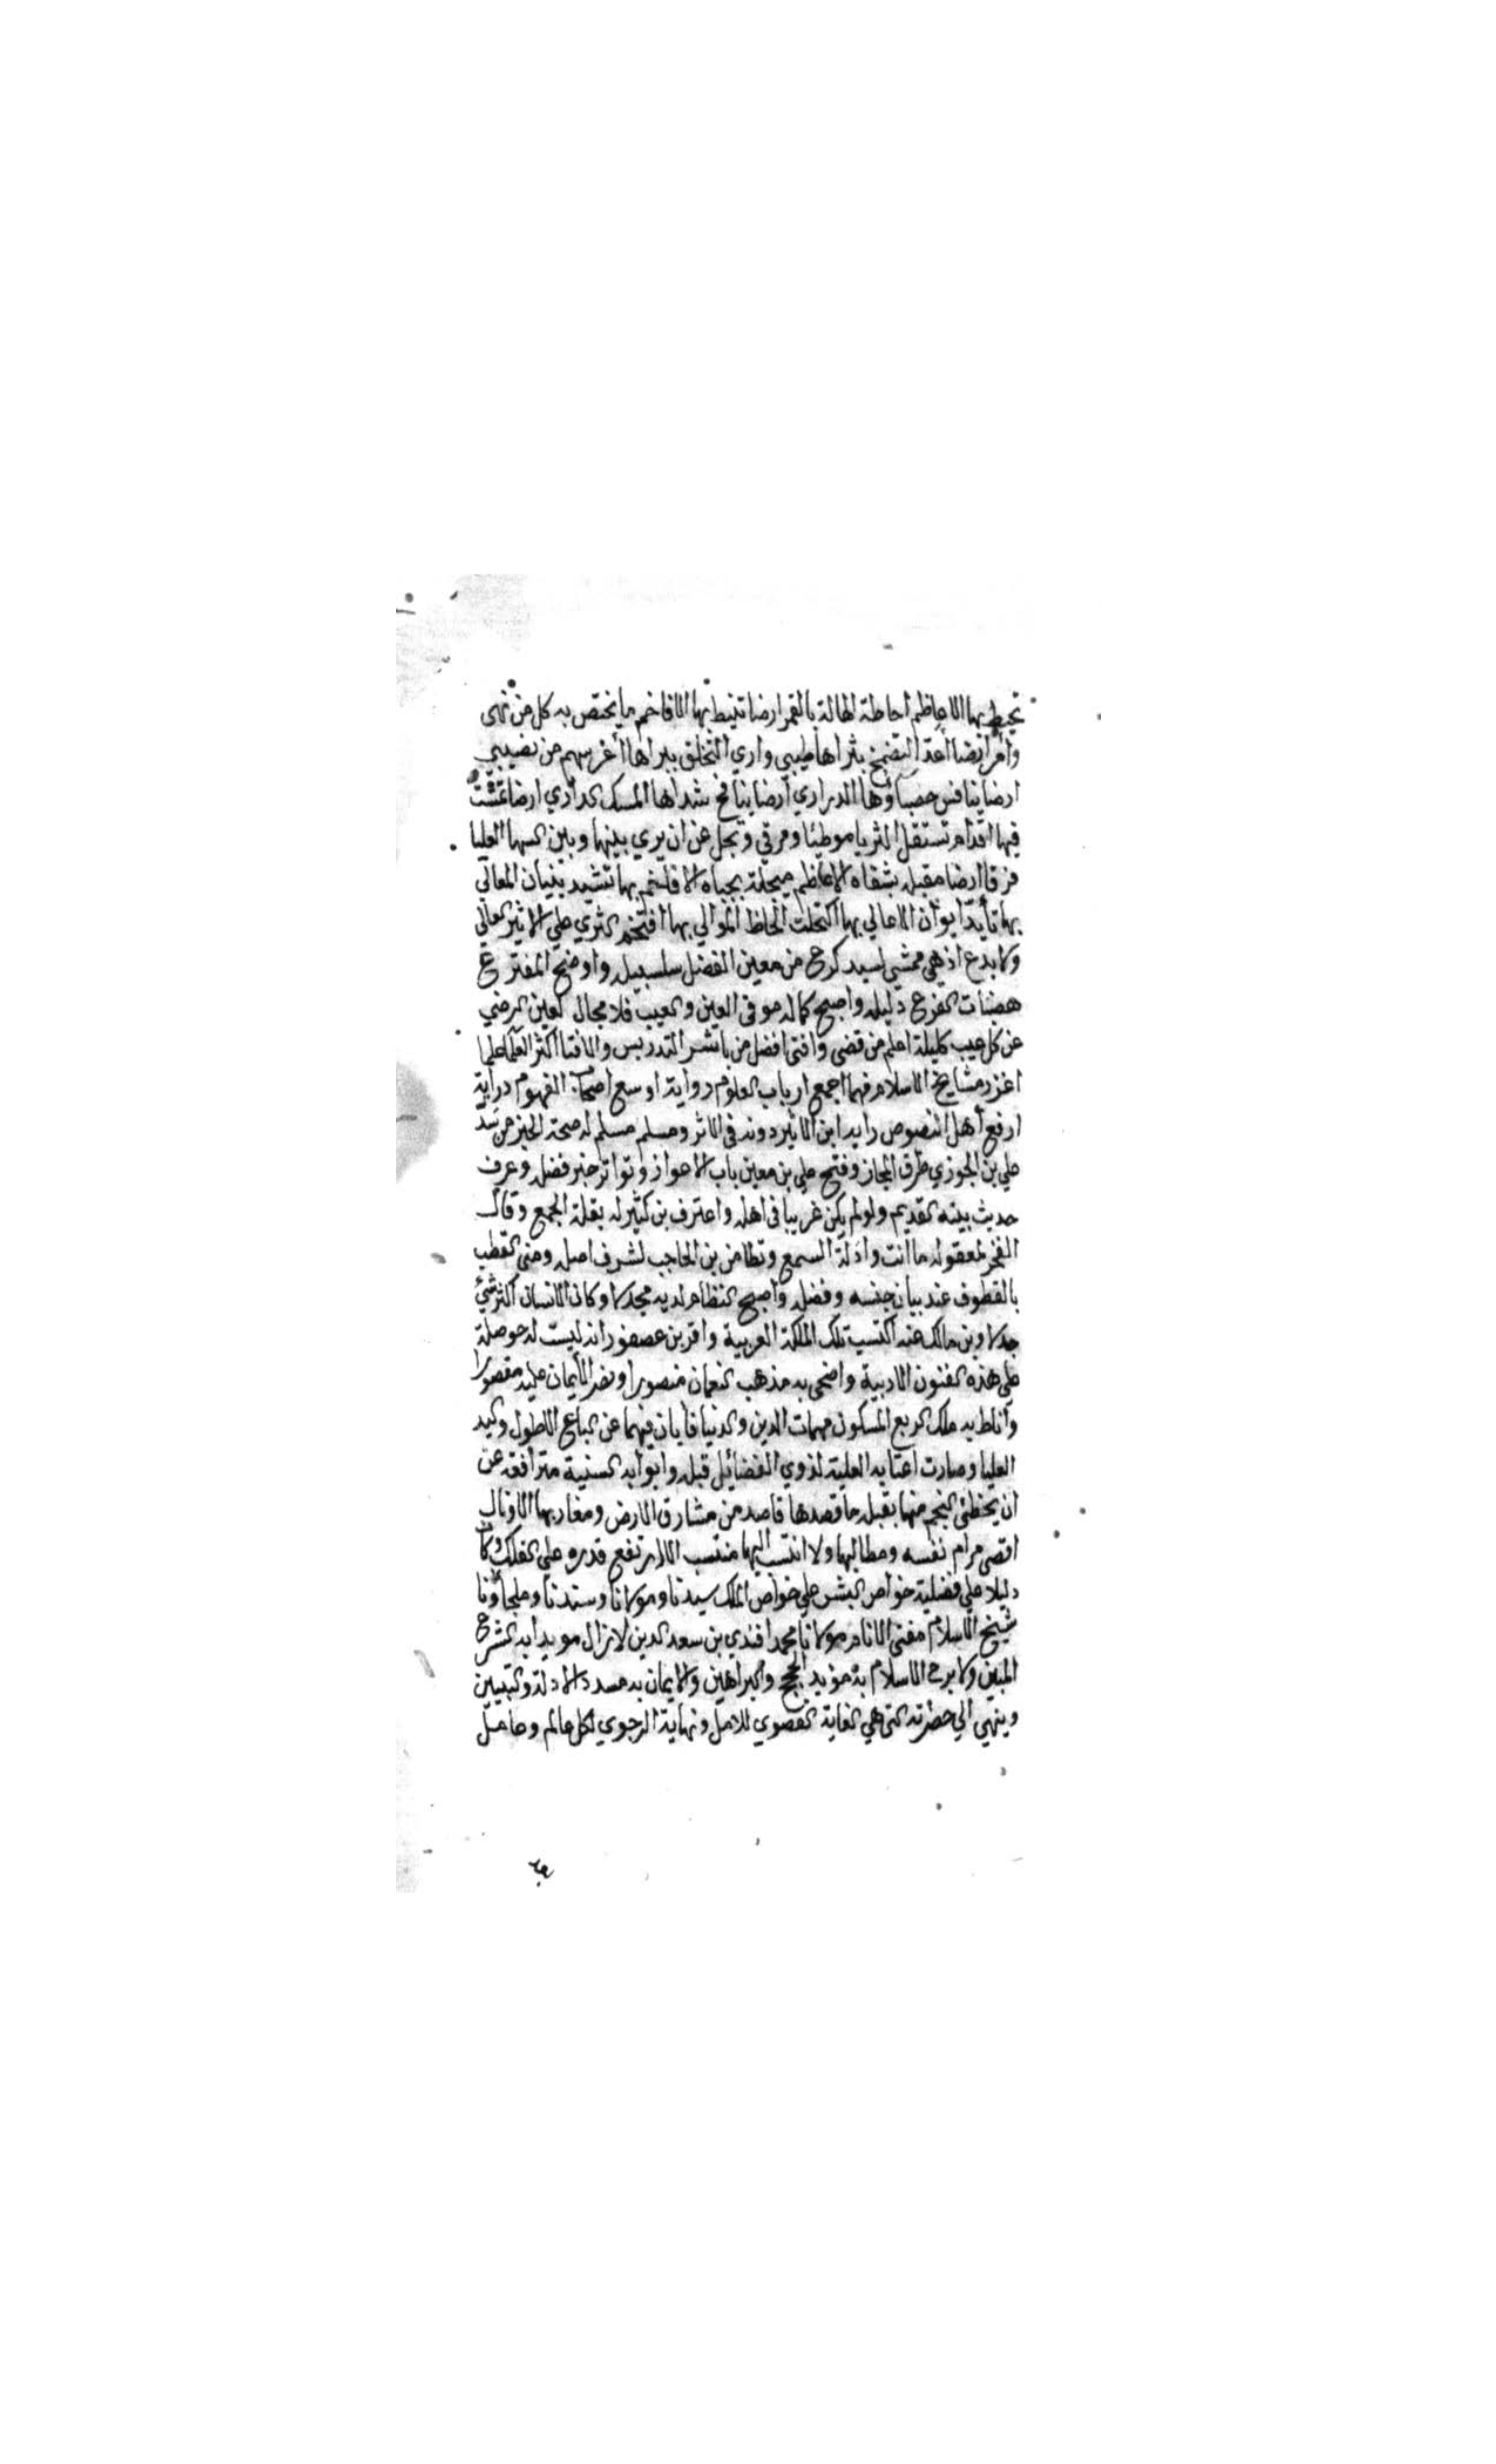 تحيط بها الاعاظم احاطة الهالة بالقمر ارضا تنيط بها الافاخم ما يختص به كل من نهى
وأمر ارضا أعد التضمخ بثراها طيبي واري التخلق ببراها أغر سهم من نصيبي
ارضا ينافس حصباؤها الدراري أرضا ينافح شداها المسك الداري ارضا تمشت
فيها اقدام تستقل الثريا موطئا ومرقي وتجل عن ان يري بينها وبين السها العليا
فرقا ارضا مقبلة بشفاه الاعاظم مبجلة بجباه الافاخم بها تشيد بنيان المعالي
بها تأيد ايوان الاعالي بها اكتحلت الحاظ الموالي بها افتخر الثري علي الاثير العالي
ولا بدع اذ هي ممشي لسيد كرع من معين الفضل سلسبيله واوضح المفترع
هضبات الفرع دليله واصبح كماله موقى العين والعيب فلا مجال لعين الرضي
عن كل عيب كليلة اعلم من قضى وافتى افضل من باشر التدريس والافتا اكثر العلماء علما
اغزر مشايخ الاسلام فهما اجمع ارباب العلوم رواية اوسع اصحاب الفهوم دراية
ارفع أهل النصوص راية ابن الاثير دونه في الاثر ومسلم مسلم له صحة الخبر من سد
علي بن الجوزي طرق المجاز وفتح علي بن معين باب الاعواز وتواتر خبر فضله وعرف
حديث بيته القديم ولو لم يكن غريبا في اهله واعترف بن كثير له بقلة الجمع وقال
الفخر لمعقوله ما انت وادلة السمع وتطامن بن الحاجب لشرف اصله ومنى القطب
بالقطوف عند بيان جنسه وفضله وأصبح النظام لديه مجدلا وكان الانسان أكثر شيئ
جدلا وبن مالك عنه اكتسب تلك الملكة العربية واقر بن عصفور انه ليست له حوصلة
علي هذه الفنون الادبية واضحى به مذهب النعمان منصورا ونصر الأيمان عليه مقصورا
وأناط به ملك الربع المسكون مهمات الدين والدنيا فأبان فيهما عن الباع الاطول واليد
العليا وصارت اعتابه العلية لذوي الفضائل قبلة وابوابه السنية مترافقة عن
ان يحظى النجم منها بقبلة ما قصدها قاصد من مشارق الارض ومغاربها الا ونال
اقصى مرام نفسه ومطالبها ولا انتسب اليها منتسب الا ارتفع قدره على الفلك وكان
دليلا علي فضلية خواص البشر علي خواص الملك سيدنا ومولانا وسندنا وملجأونا
شيخ الاسلام مفتى الانام مولانا محمد افندي بن سعد الدين لا زال مويدا به الشرع
المبين ولا برح الاسلام به مؤيد الحجج والبراهين والايمان به مسدد الادلة والتبيين
وينهي الي حضرته التي هي الغاية القصوي للامل ونهاية الرجوي لكل عالم وعامل